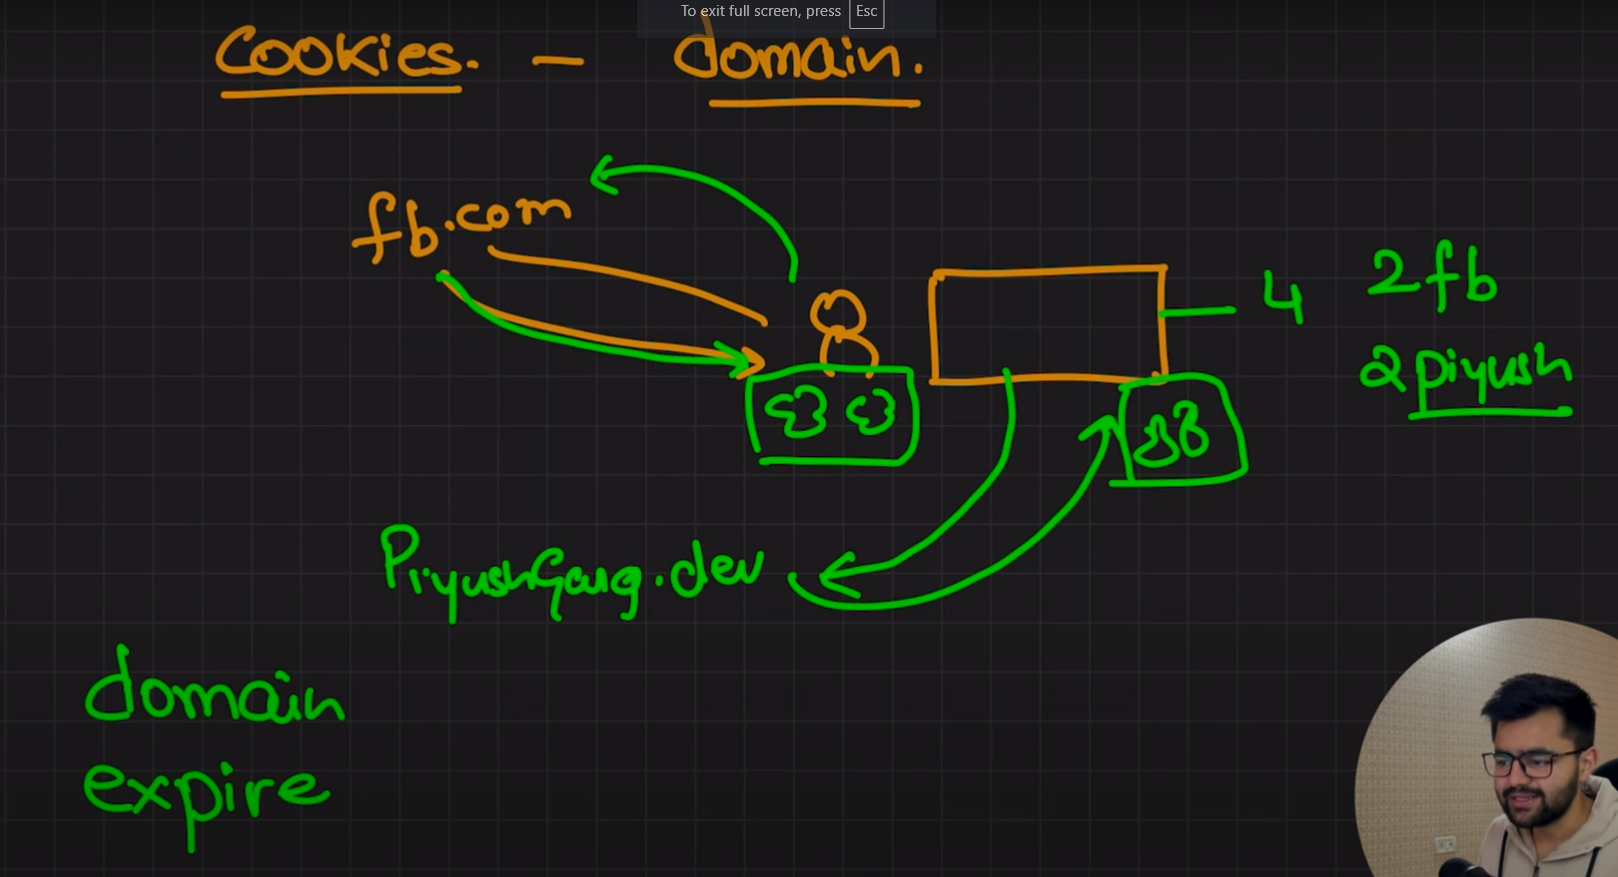 To exit full screen, press Esc
Cookies. - domain.
fb.com
4 2fb
2piyush
PiyushGarg.dev
domain
expire